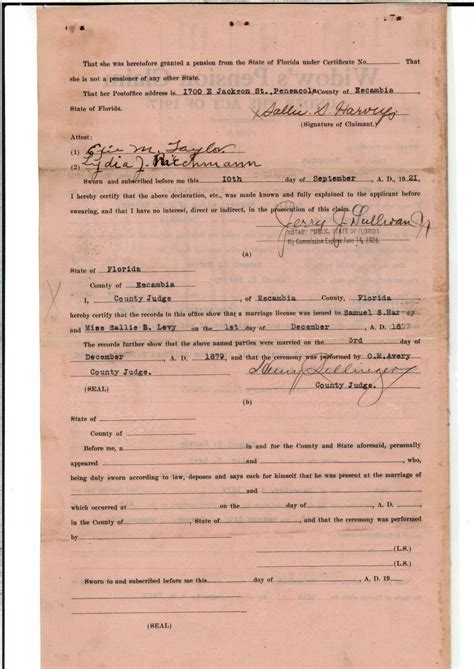 That she was heretofore granted a pension from the State of Florida under Certificate No. That
she is not a pensioner of any other State.
That her Postoffice address is 1700 E Jackson St., Pensacola County of Escambia
State of Florida.
Sallie S. Harvey
(Signature of Claimant.)
Attest:
(1) M. Taylor
(2) Lydia J.
Sworn and subscribed before me this 10th day of September, A. D., 1921,
I hereby certify that the above declaration, etc., was made known and fully explained to the applicant before
swearing, and that I have no interest, direct or indirect, in the prosecution of this claim.
Jerry J. Sullivan Jr
NOTARY PUBLIC, STATE OF FLORIDA
My Commission Expires June 14, 1924.
(a)
State of Florida
County of Escambia
I, County Judge, of Escambia County, Florida
hereby certify that the records in this office show that a marriage license was issued to Samuel S. Harvey
and Miss Sallie E. Levy on the 1st day of December, A. D. 187
The records further show that the above named parties were married on the 3rd day of
December, A. D. 1879, and that the ceremony was performed by O.M.Avery
County Judge.
(SEAL) County Judge.
(b)
State of
County of
Before me, a in and for the County and State aforesaid, personally
appeared and who,
being duly sworn according to law, deposes and says each for himself that he was present at the marriage of
which occurred at on the day of A. D.
in the County of, State of, and that the ceremony was performed
by
(L.S.)
(L.S.)
Sworn to and subscribed before me this day of, A. D. 19
(SEAL)